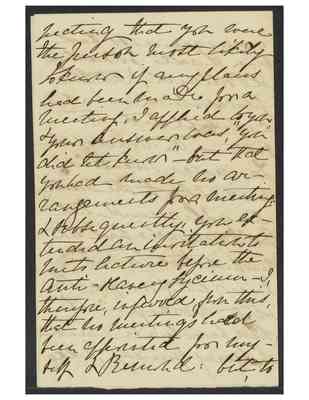 pecting that you were
the person most likely
to know if any plans
had been made for a
meeting, I applied to you
& your answer was, "you
did let know" - but that
you had made no ar-
rangements for a meeting.
Subsequently, you ex-
tended an invitation to
me to lecture before the
Anti-Slavery Lyceum - I,
therefore, inferred from this,
that no meetings had
been appointed for my-
self & Remond: but, to